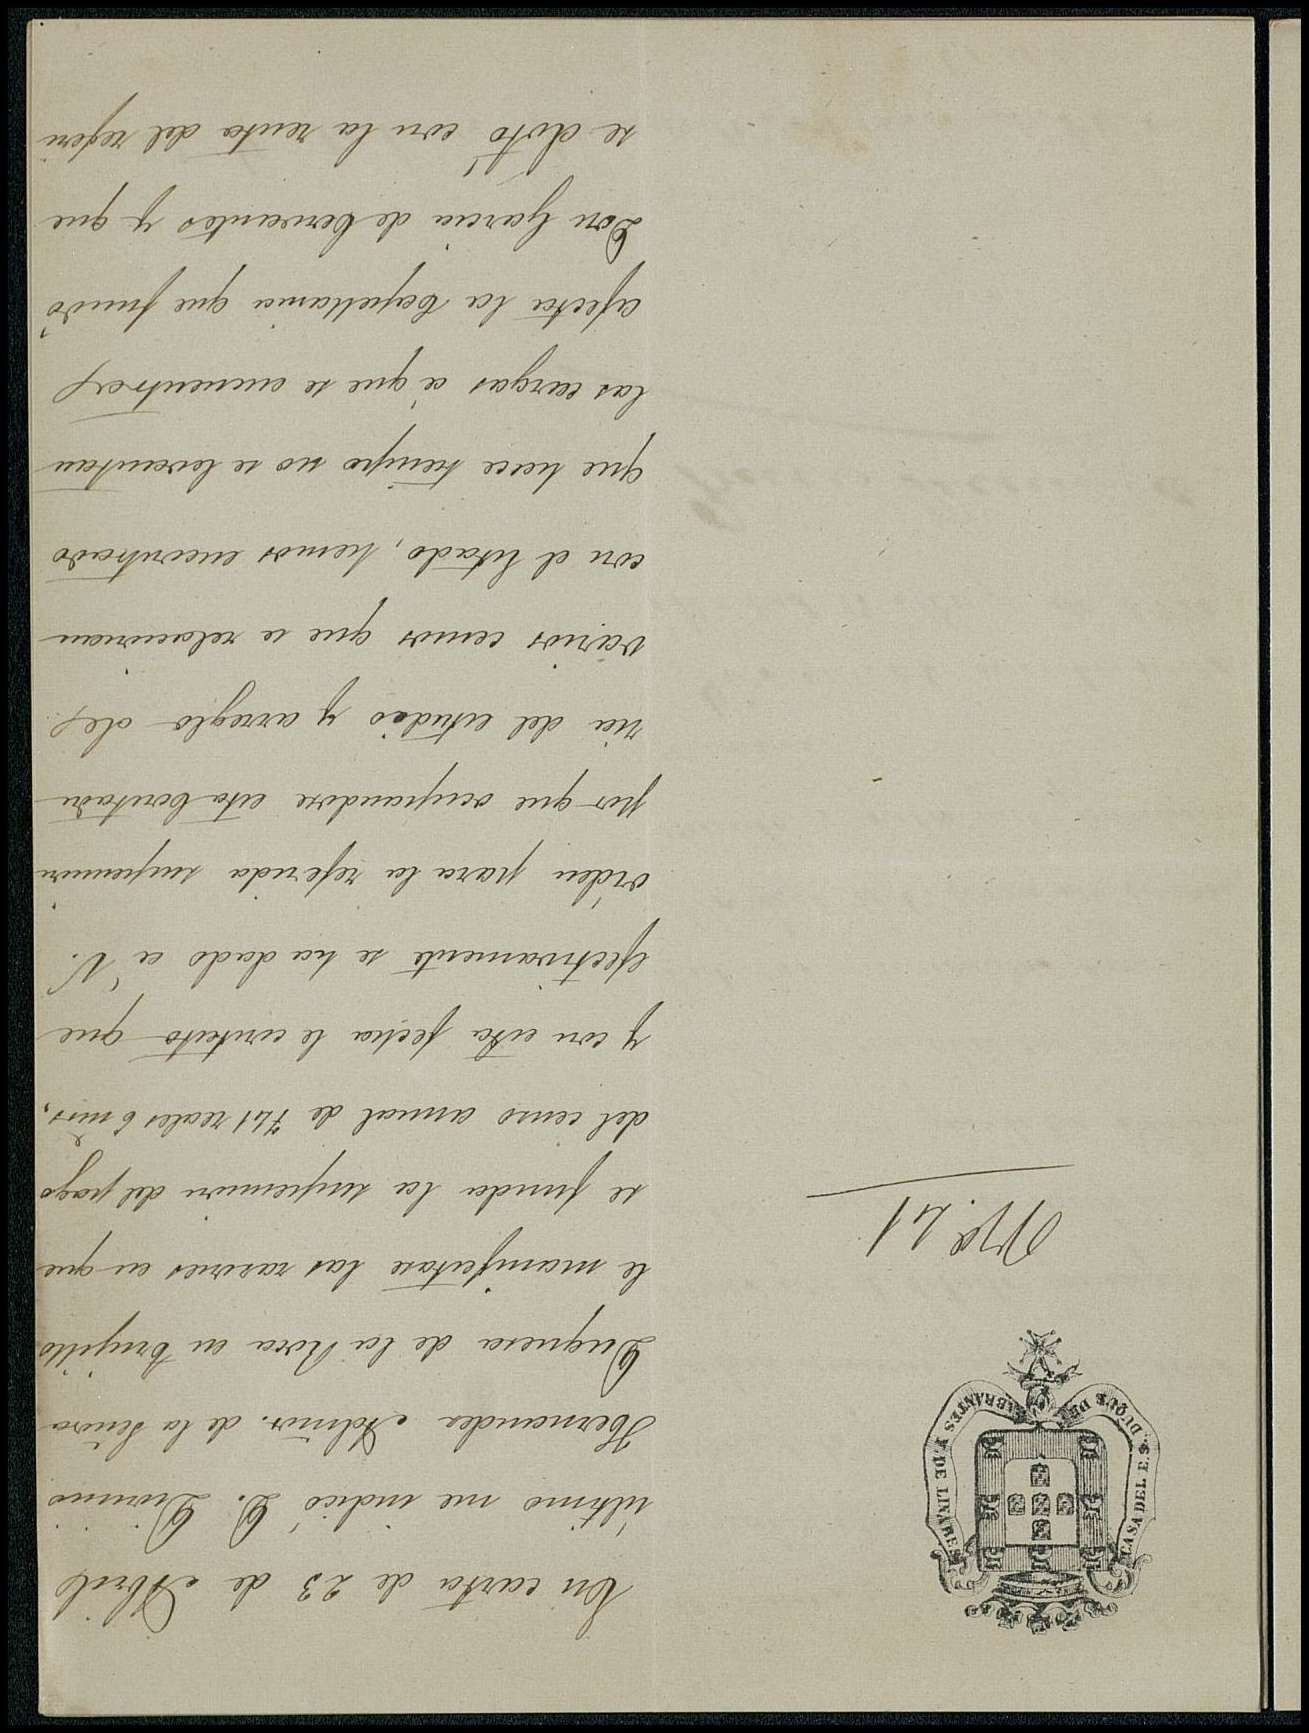 CASA DEL E.S. DUQUE DE ABRANTES Y DE LINARES
Nº 41
En carta de 23 de Abril
último me indicó D. Dionicio
Hernandez Admor. de la Señora
Duquesa de la Roca en Trujillo
le manifestase las razones en que
se funda la suspension del pago
del censo anual de 741 reales 6 mrs,
y con esta fecha le contesto que
efectivamente se ha dado á V.
órden para la referida suspension
por que ocupandose esta Contadu
ria del estudio y arreglo de
varios censos que se relacionan
con el Estado, hemos encontrado
que hace tiempo no se levantan
las cargas á que se encuentra
afecta la Capellania que fundó
Don Garcia de Cervantes y que
se dotó con la renta del referi